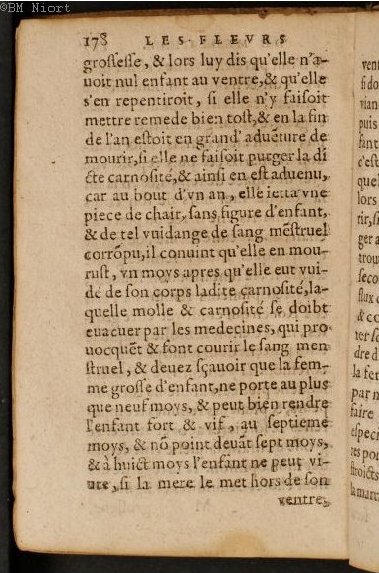 ©BM Niort
178 LES FLEVRS
grossesse, & lors luy dis qu'elle n'a-
uoit nul enfant au ventre, & qu'elle
s'en repentiroit, si elle n'y faisoit
mettre remede bien tost, & en la fin
de l'an estoit en grand' aduẽture de
mourir, si elle ne faisoit purger la di
cte carnosité, & ainsi en est aduenu,
car au bout d'vn an, elle ietta vne
piece de chair, sans figure d'enfant,
& de tel vuidange de sang mẽstruel
corrõpu, il conuint qu'elle en mou-
rust, vn moys apres qu'elle eut vui-
dé de son corps ladite carnosité, la-
quelle molle & carnosité se doibt
euacuer par les medecines, qui pro
uocquẽt & font courir le sang men
struel, & deuez sçauoir que la fem-
me grosse d'enfant, ne porte au plus
que neuf moys, & peut bien rendre
l'enfant fort & vif, au septieme
moys, & nõ point deuãt sept moys,
& à huict moys l'enfant ne peut vi-
ure, si la mere le met hors de son
ventre,